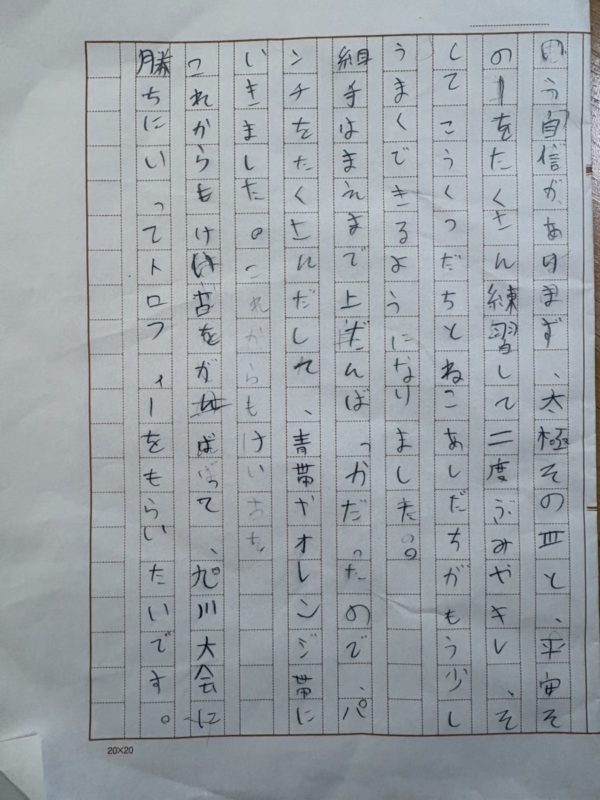 う自信があります、太極その三と、平安そ
の一をたくさん練習して二度ぶみやキレ、そ
してこうくつだちとねこあしだちがもう少し
うまくできるようになりました。
組手はまえまで上だんばっかだったので、パ
ンチをたくさんだして、青帯やオレンジ帯に
いきました。これからもけい古を
これからもけい古をがんばって、旭川大会に
勝ちにいってトロフィーをもらいたいです。
20×20